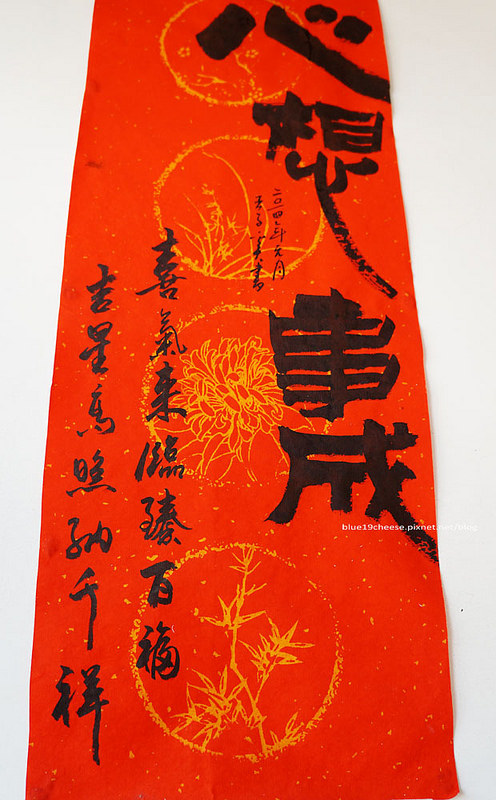 心想事成
二〇一四年元月
喜氣來臨臻百福
吉星高照納千祥
blue19cheese.pixnet.net/blog